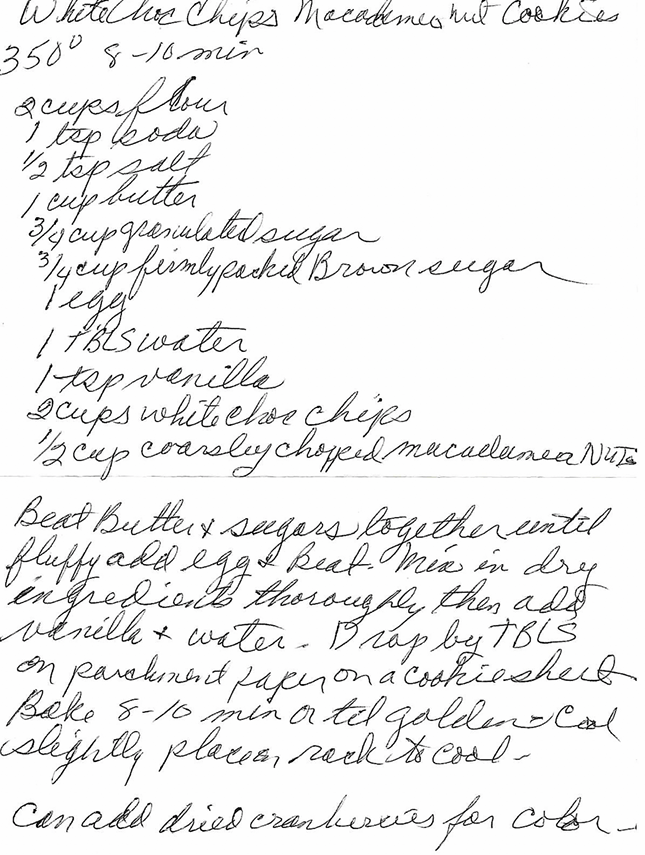 White Choc Chips Macadamea nut Cookies
350° 8-10 min
2 cups flour
1 tsp soda
1/2 tsp salt
1 cup butter
3/4 cup granulated sugar
3/4 cup firmly packed Brown sugar
1 egg
1 TBLS water
1 tsp vanilla
2 cups white choc chips
1/2 cup coarsley chopped macadamea Nuts
Beat Butter & sugars together until
fluffy add egg & Beat. Mix in dry
ingredients thoroughly then add
vanilla & water. Drop by TBLS
on parchment paper on a cookie sheet
Bake 8-10 min or til golden - Cool
slightly place on rack to cool -
Can add dried cranberries for color -